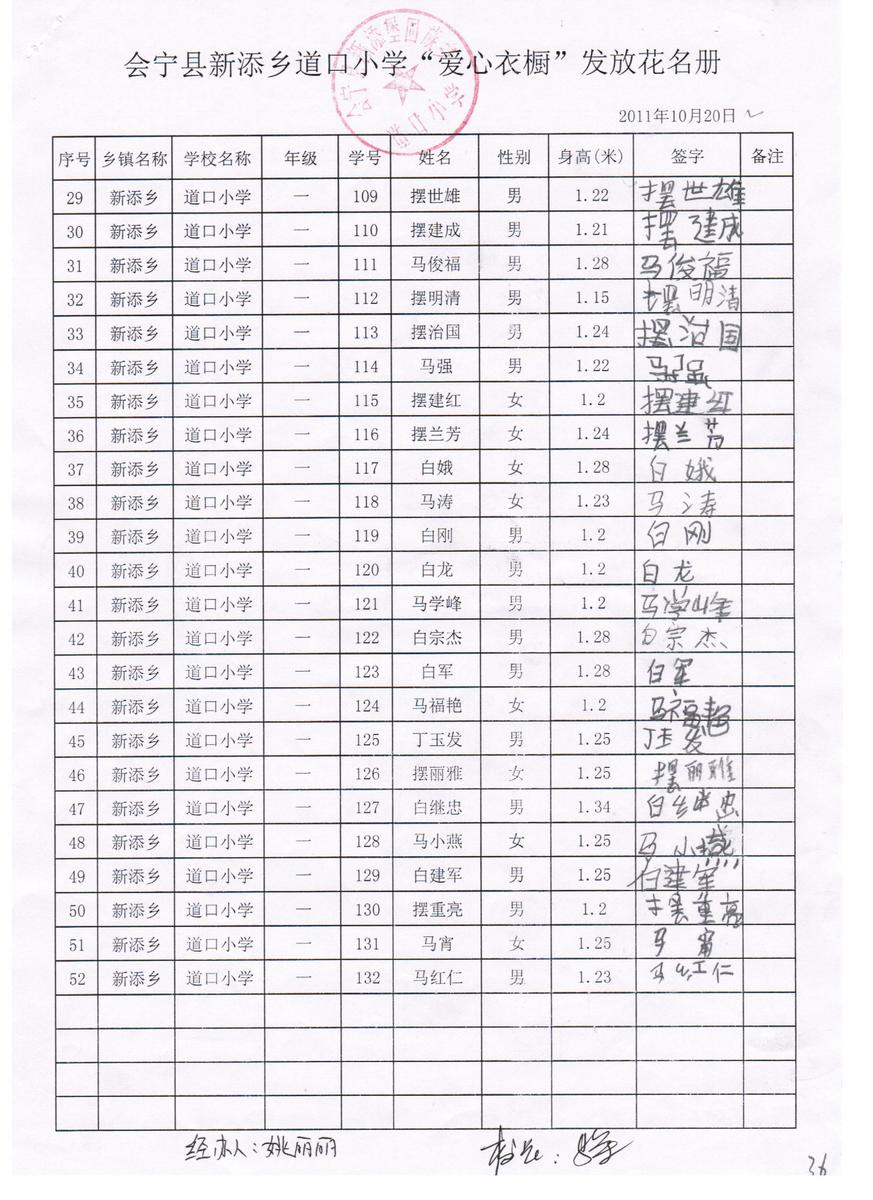 会宁县新添乡道口小学“爱心衣橱”发放花名册
2011年10月20日
序号 乡镇名称 学校名称 年级 学号 姓名 性别 身高(米) 签字 备注
29 新添乡 道口小学 一 109 摆世雄 男 1.22 摆世雄
30 新添乡 道口小学 一 110 摆建成 男 1.21 摆建成
31 新添乡 道口小学 一 111 马俊福 男 1.28 马俊福
32 新添乡 道口小学 一 112 摆明清 男 1.15 摆明清
33 新添乡 道口小学 一 113 摆治国 男 1.24 摆治国
34 新添乡 道口小学 一 114 马强 男 1.22 马强
35 新添乡 道口小学 一 115 摆建红 女 1.2 摆建红
36 新添乡 道口小学 一 116 摆兰芳 女 1.24 摆兰芳
37 新添乡 道口小学 一 117 白娥 女 1.28 白娥
38 新添乡 道口小学 一 118 马涛 女 1.23 马涛
39 新添乡 道口小学 一 119 白刚 男 1.2 白刚
40 新添乡 道口小学 一 120 白龙 男 1.2 白龙
41 新添乡 道口小学 一 121 马学峰 男 1.2 马学峰
42 新添乡 道口小学 一 122 白宗杰 男 1.28 白宗杰
43 新添乡 道口小学 一 123 白军 男 1.28 白军
44 新添乡 道口小学 一 124 马福艳 女 1.2 马福艳
45 新添乡 道口小学 一 125 丁玉发 男 1.25 丁玉发
46 新添乡 道口小学 一 126 摆丽雅 女 1.25 摆丽雅
47 新添乡 道口小学 一 127 白继忠 男 1.34 白继忠
48 新添乡 道口小学 一 128 马小燕 女 1.25 马小燕
49 新添乡 道口小学 一 129 白建军 男 1.25 白建军
50 新添乡 道口小学 一 130 摆重亮 男 1.2 摆重亮
51 新添乡 道口小学 一 131 马宵 女 1.25 马宵
52 新添乡 道口小学 一 132 马红仁 男 1.23 马红仁
经办人:姚丽丽 校长:
36